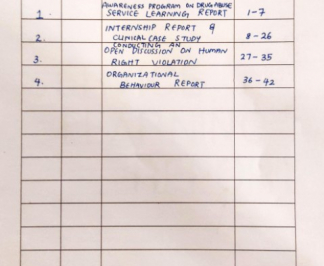 1. AWARENESS PROGRAM ON DRUG ABUSE
SERVICE LEARNING REPORT 1-7
2. INTERNSHIP REPORT &
CLINICAL CASE STUDY 8-26
CONDUCTING AN
3. OPEN DISCUSSION ON HUMAN 27-35
RIGHT VIOLATION
4. ORGANIZATIONAL 36-42
BEHAVIOUR REPORT